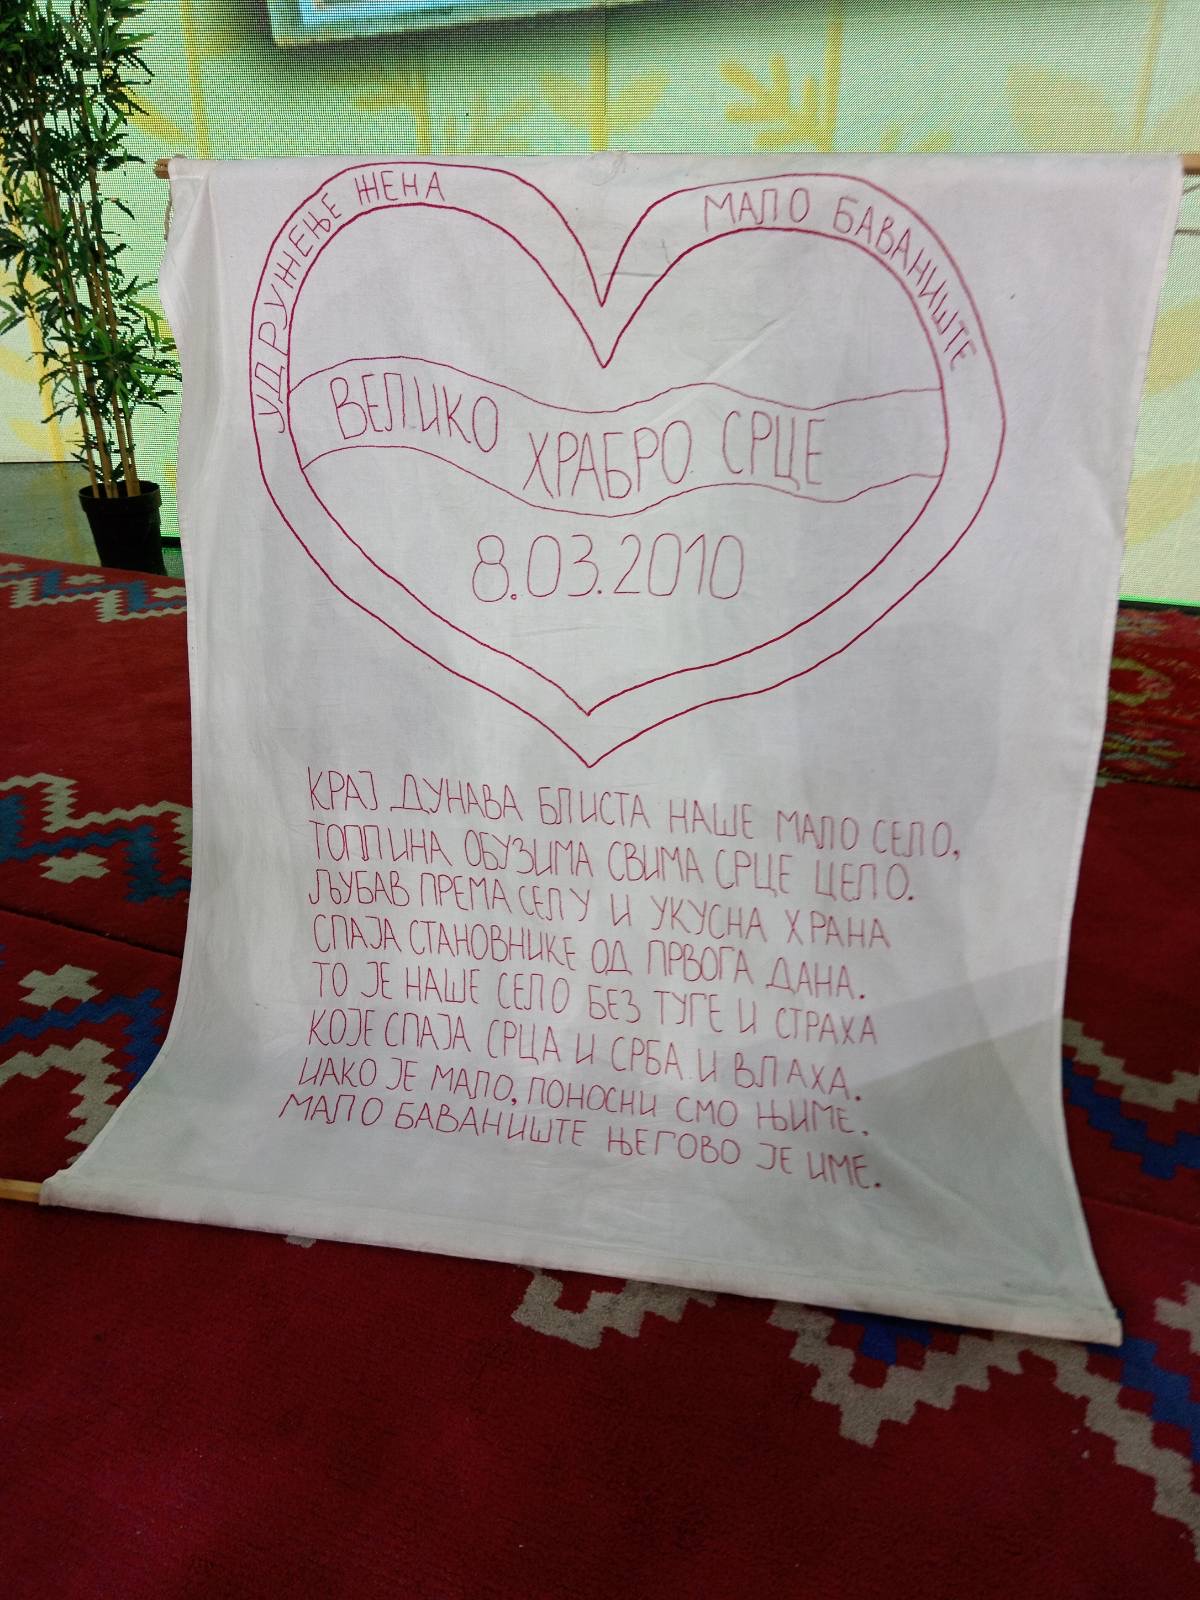 УДРУЖЕЊЕ ЖЕНА
МАЛО БАВАНИШТЕ
ВЕЛИКО ХРАБРО СРЦЕ
8.03.2010
КРАЈ ДУНАВА БЛИСТА НАШЕ МАЛО СЕЛО,
ТОПЛИНА ОБУЗИМА СВИМА СРЦЕ ЦЕЛО.
ЉУБАВ ПРЕМА СЕЛУ И УКУСНА ХРАНА
СПАЈА СТАНОВНИКЕ ОД ПРВОГА ДАНА.
ТО ЈЕ НАШЕ СЕЛО БЕЗ ТУГЕ И СТРАХА
КОЈЕ СПАЈА СРЦА И СРБА И ВЛАХА.
ИАКО ЈЕ МАЛО, ПОНОСНИ СМО ЊИМЕ.
МАЛО БАВАНИШТЕ ЊЕГОВО ЈЕ ИМЕ.